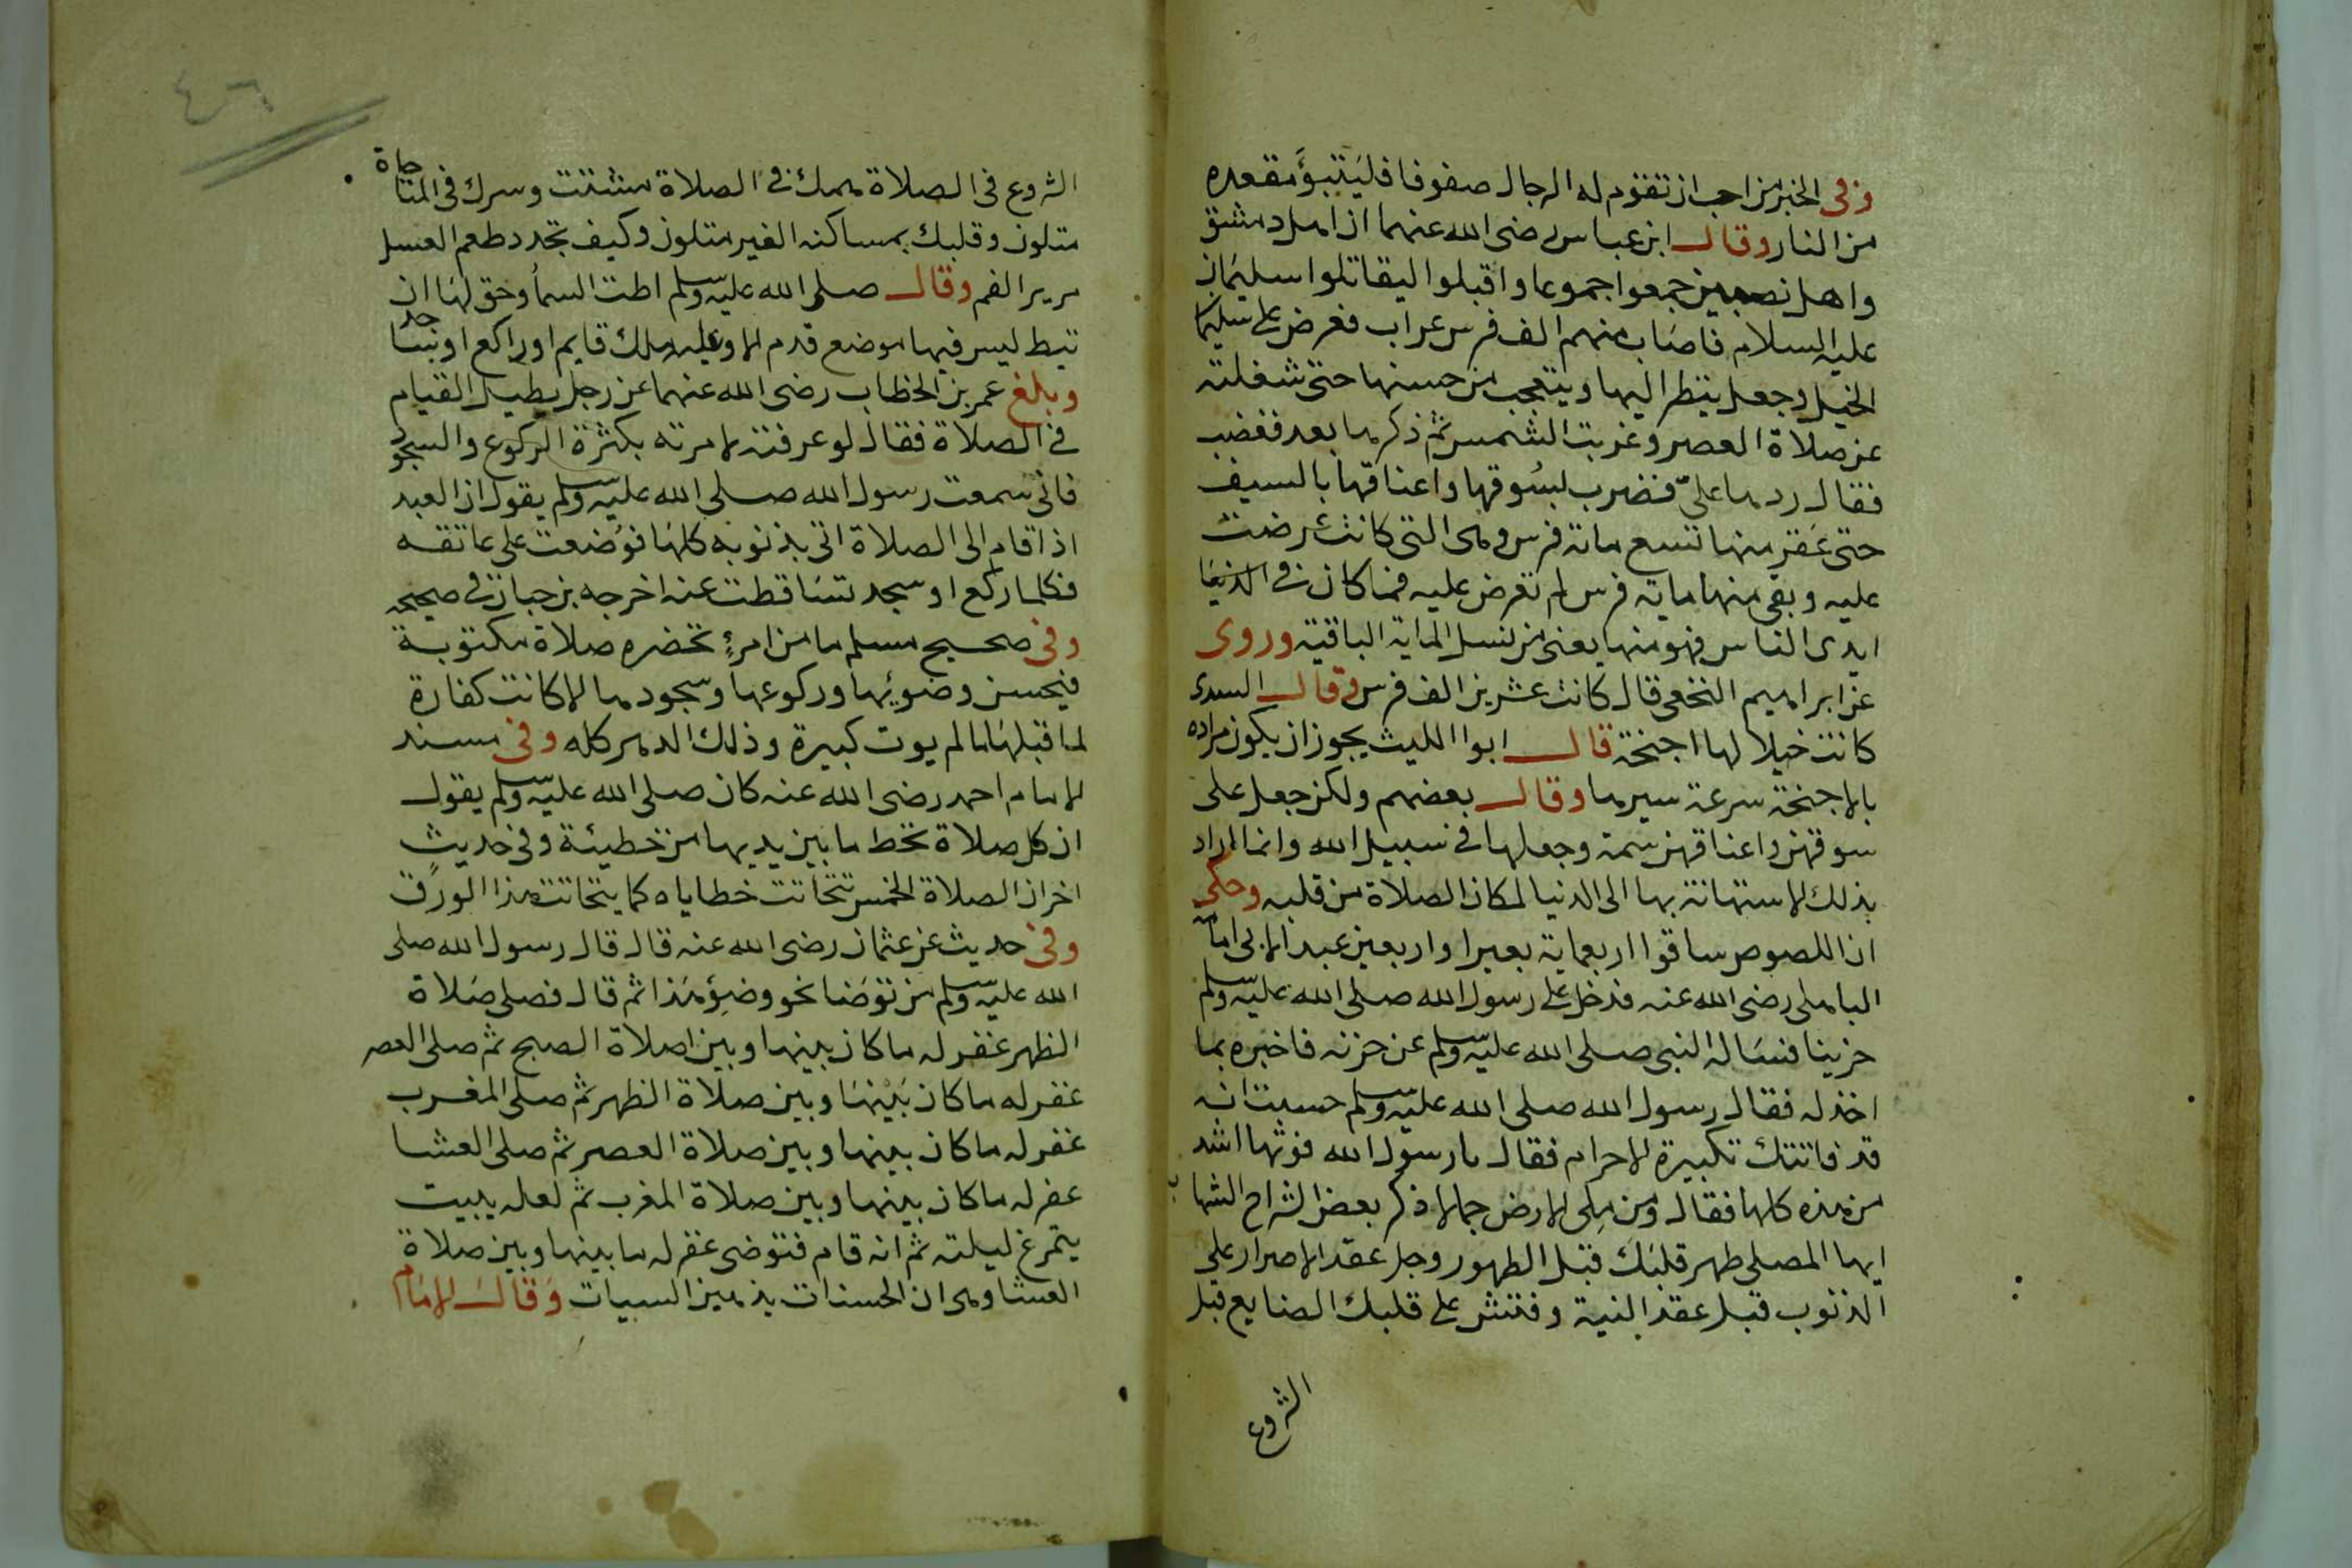 وفى الخبر من احب ان تقوم له الرجال صفوفا فليتبوَّأ مقعده
من النار وقال ابن عباس رضى الله عنهما ان اهل دمشق
واهل نصيبين جمعوا جموعا واقبلوا ليقاتلوا سليمان
عليه السلام فاصاب منهم الف فرس عراب فعرض على سليمان
الخيل وجعل ينظر اليها ويتعجب من حسنها حتى شغلته
عن صلاة العصر وغربت الشمس ثم ذكرها بعد فغضب
فقال ردها علىّ فضرب بسُوقها واعناقها بالسيف
حتى عَقر منها تسع ماتة فرس وهى التى كانت عرضت
عليه وبقى منها ماية فرس لم تعرض عليه فما كان فى الدنيا
ايدى الناس فهو منها يعنى من نسل الماية الباقية وروى
عن ابراهيم النخعى قال كانت عشرين الف فرس وقال السدى
كانت خيلا لها اجنحة قال ابوا الليث يجوز ان يكون مراده
بالاجنحة سرعة سيرها وقال بعضهم ولكن جعل على
سوقهن واعناقهن سمة وجعلها فى سبيل الله وانما المراد
بذلك الاستهانة بها الى الدنيا لمكان الصلاة من قلبه وحكى
ان اللصوص ساقوا اربعماية بعيرا واربعين عبدا لابى امامة
الباهلى رضى الله عنه فدخل على رسول الله صلى الله عليه وسلم
حزينا فساله النبى صلى الله عليه وسلم عن حزنه فاخبره بما
اخذ له فقال رسول الله صلى الله عليه وسلم حسبت انه
قد فاتتك تكبيرة الاحرام فقال يا رسول الله فوتها اشد
من هذه كلها فقال ومن ملى الارض جمالا ذكر بعض الشراح الشهاب
ايها المصلى طهر قلبَك قبل الطهور وحل عقد الاصرار على
الذنوب قبل عقد النية وفتش على قلبك الصنايع قبل
الشروع
٤٦
الشروع فى الصلاة همك فى الصلاة مشتت وسرك فى المناجاة
متلون وقلبك بمساكنه الغير متلون وكيف تجدد طعم العسل
مرير الفم وقال صلى الله عليه وسلم اطت السمأ وحق لها ان
تيط ليس فيها موضع قدم الا وعليه ملك قايم او راكع او ساجد
وبلغ عمر بن الخطاب رضى الله عنهما عن رجل يطيل القيام
فى الصلاة فقال لو عرفته لامرته بكثرة الركوع والسجود
فانى سمعت رسول الله صلى الله عليه وسلم يقول ان العبد
اذا قام الى الصلاة اتى بذنوبه كلها فوُضعت على عاتقه
فكلما ركع او سجد تساقطت عنه اخرجه بن حبان فى صحيحه
وفى صحيح مسلم ما من امرءٍ تحضره صلاة مكتوبة
فيحسن وضوئها وركوعها وسجودها الا كانت كفارة
لما قبلها ما لم يوت كبيرة وذلك الدهر كله وفى مسند
الامام احمد رضى الله عنه كان صلى الله عليه وسلم يقول
ان كل صلاة تحط ما بين يديها من خطيئة وفى حديثٍ
اخر ان الصلاة الخمس تتحاتت خطاياه كما يتحاتت هذا الورق
وفى حديث عن عثمان رضى الله عنه قال قال رسول الله صلى
الله عليه وسلم من توضا نحو وضوِئ هذا ثم قال فصلى صلاة
الظهر غفر له ما كان بينها وبين اصلاة الصبح ثم صلى العصر
غفر له ما كان بَيْنها وبين صلاة الظهر ثم صلى المغرب
غفر له ما كان بينها وبين صلاة العصر ثم صلى العشا
عفر له ما كان بينها وبين صلاة المغرب ثم لعله يبيت
يتمرغ ليلته ثم انه قام فتوضى غفر له ما بينها وبين صلاة
العشا وهى ان الحسنات يذهبن السيات وَقَال الامام